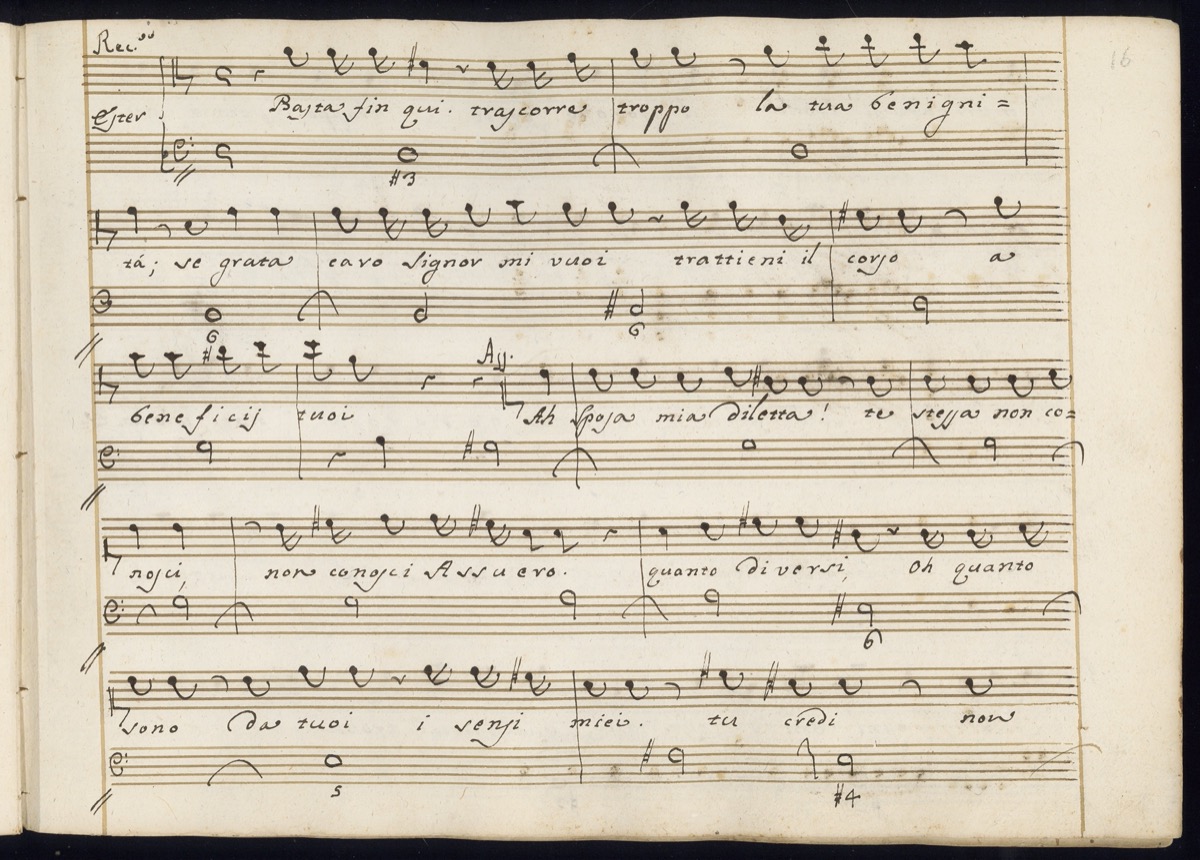 Rec.vo
16
Ester Basta fin qui. trascorre troppo la tua benigni=
#3
tá; se grata caro signor mi vuoi trattieni il corso a
6 6
Ass.
beneficij tuoi Ah sposa mia diletta! te stessa non co=
nosci, non conosci Assuero. quanto diversi, oh quanto
6
sono da tuoi i sensi miei. tu credi non
5 #4